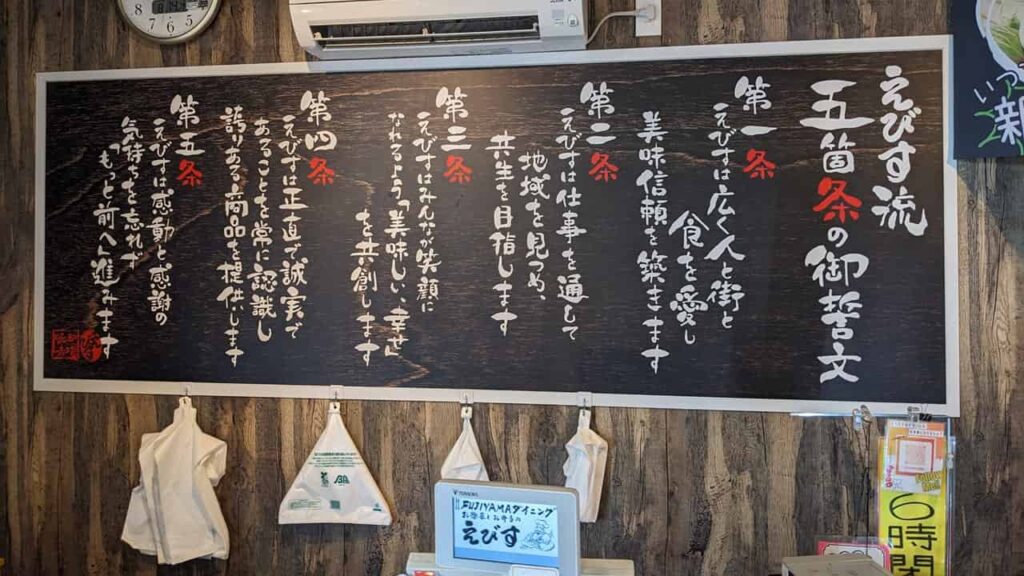 えびす流
五箇条の御誓文
第一条
えびすは広く人と街と
食を愛し
美味信頼を築きます
第二条
えびすは仕事を通して
地域を見つめ、
共生を目指します
第三条
えびすはみんなが笑顔に
なれるよう「美味しい、幸せ」
を共創します
第四条
えびすは正直で誠実で
あることを常に認識し
誇りある商品を提供します
第五条
えびすは感動と感謝の
気持ちを忘れず
もっと前へ進みます
FUJIYAMAダイニング
お惣菜とお弁当の
えびす
6時閉
新
8
7
6
5